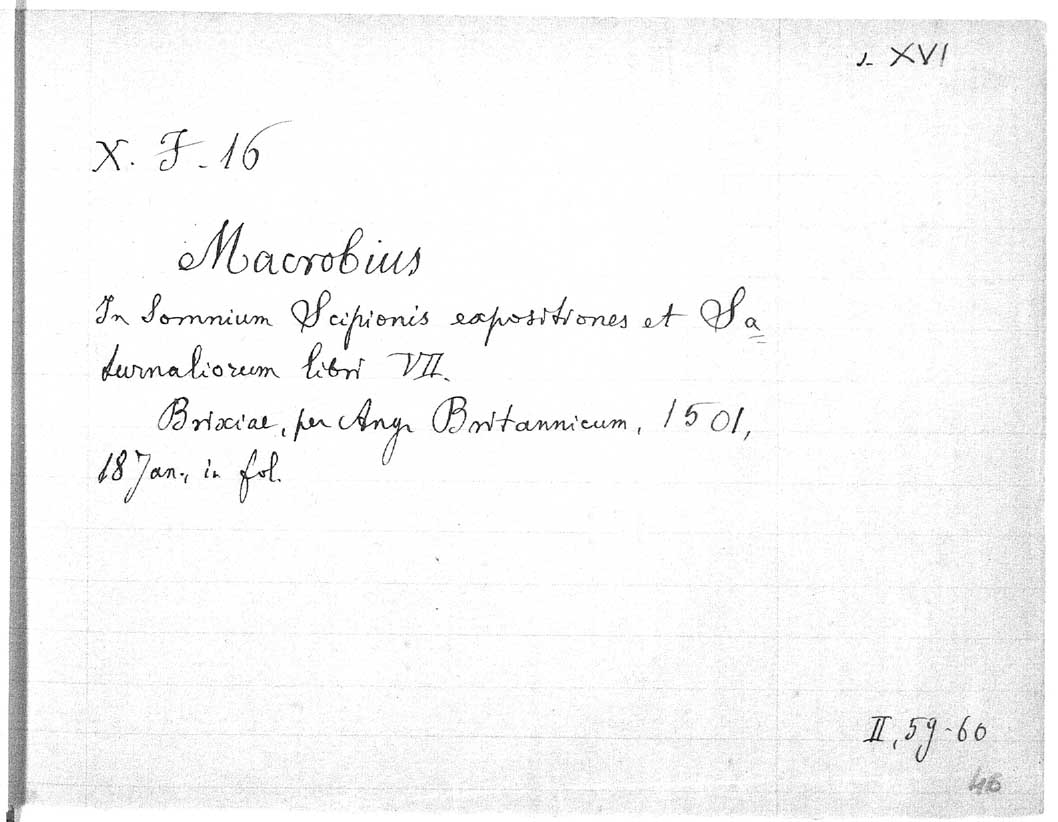 s. XVI
X. F. 16
Macrobius
In Somnium Scipionis expositiones et Sa=
turnaliorum libri VII.
Brixiae, per Ang. Britannicum, 1501,
18 Jan., in fol.
II, 59-60
46